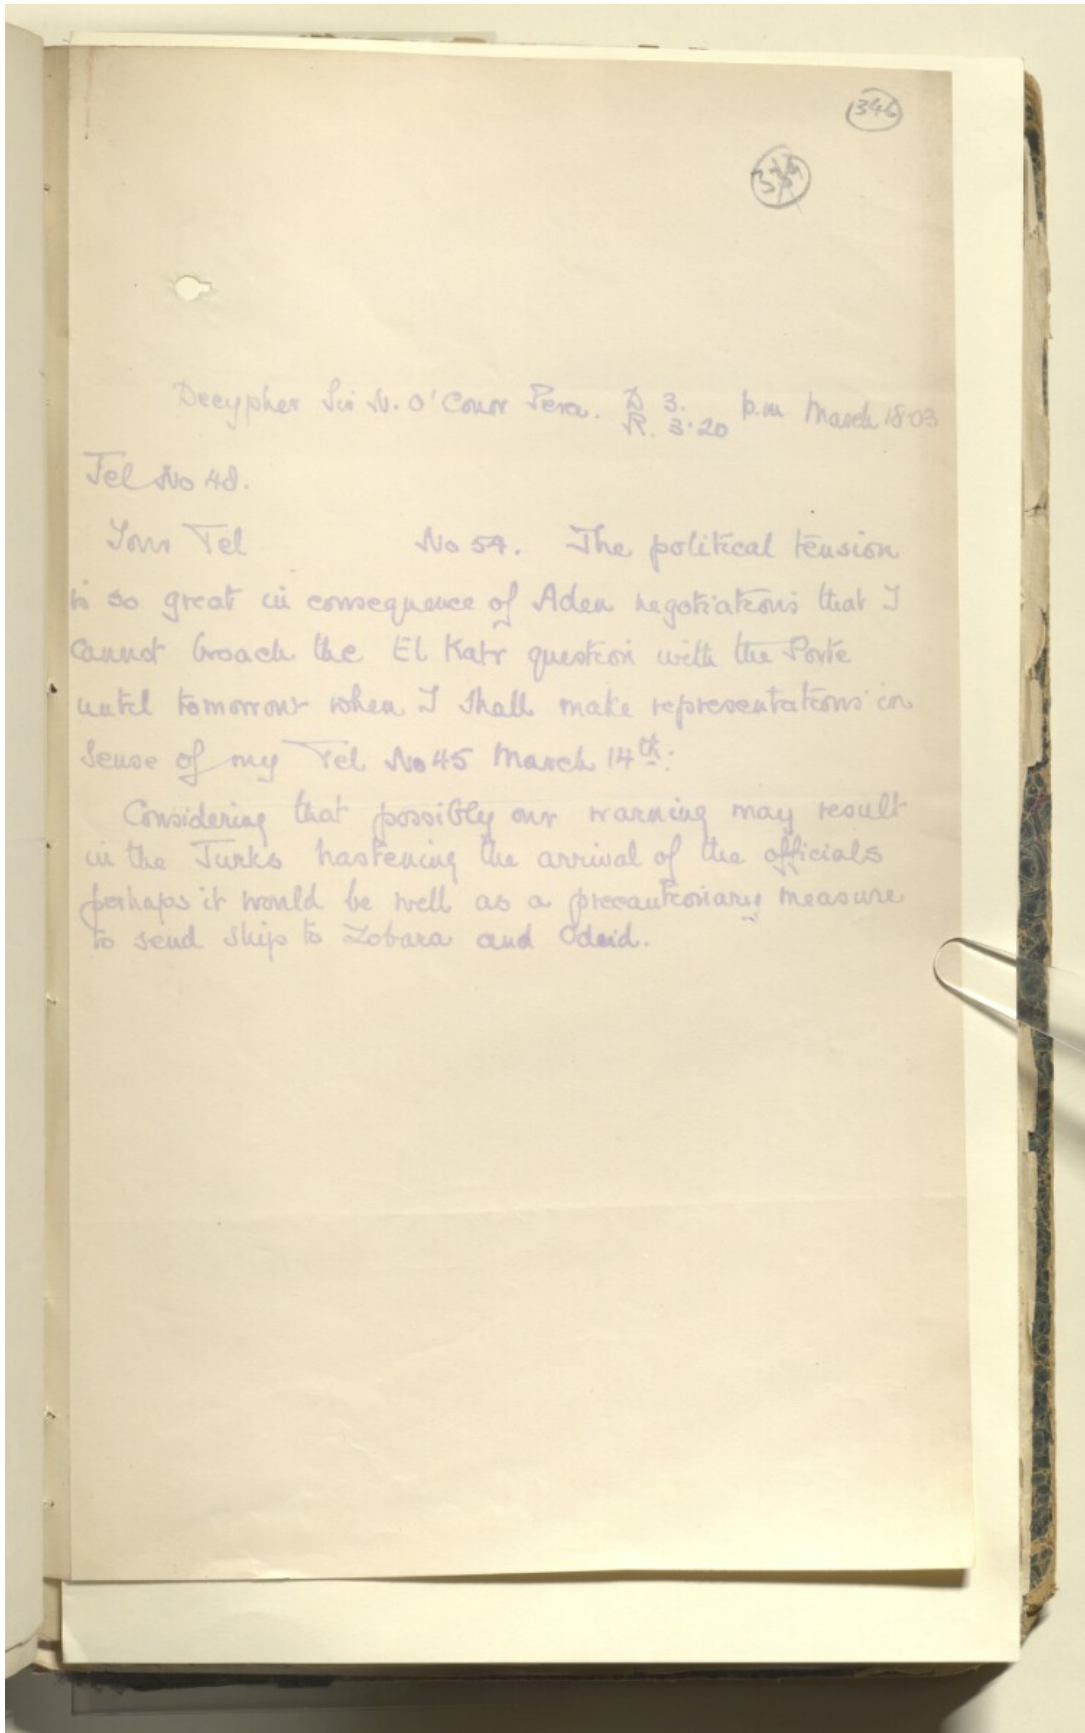 346
Decypher Sir N. O'Conor Pera. D 3. p.m March 18.03
R. 3.20
Tel No 48.
Your Tel No 54. The political tension
is so great in consequence of Aden negotiations that I
cannot broach the El Katr question with the Porte
until tomorrow when I shall make representations in
sense of my Tel No 45 March 14th.
Considering that possibly our warning may result
in the Turks hastening the arrival of the officials
perhaps it would be well as a precautionary measure
to send ships to Zobara and Odeid.